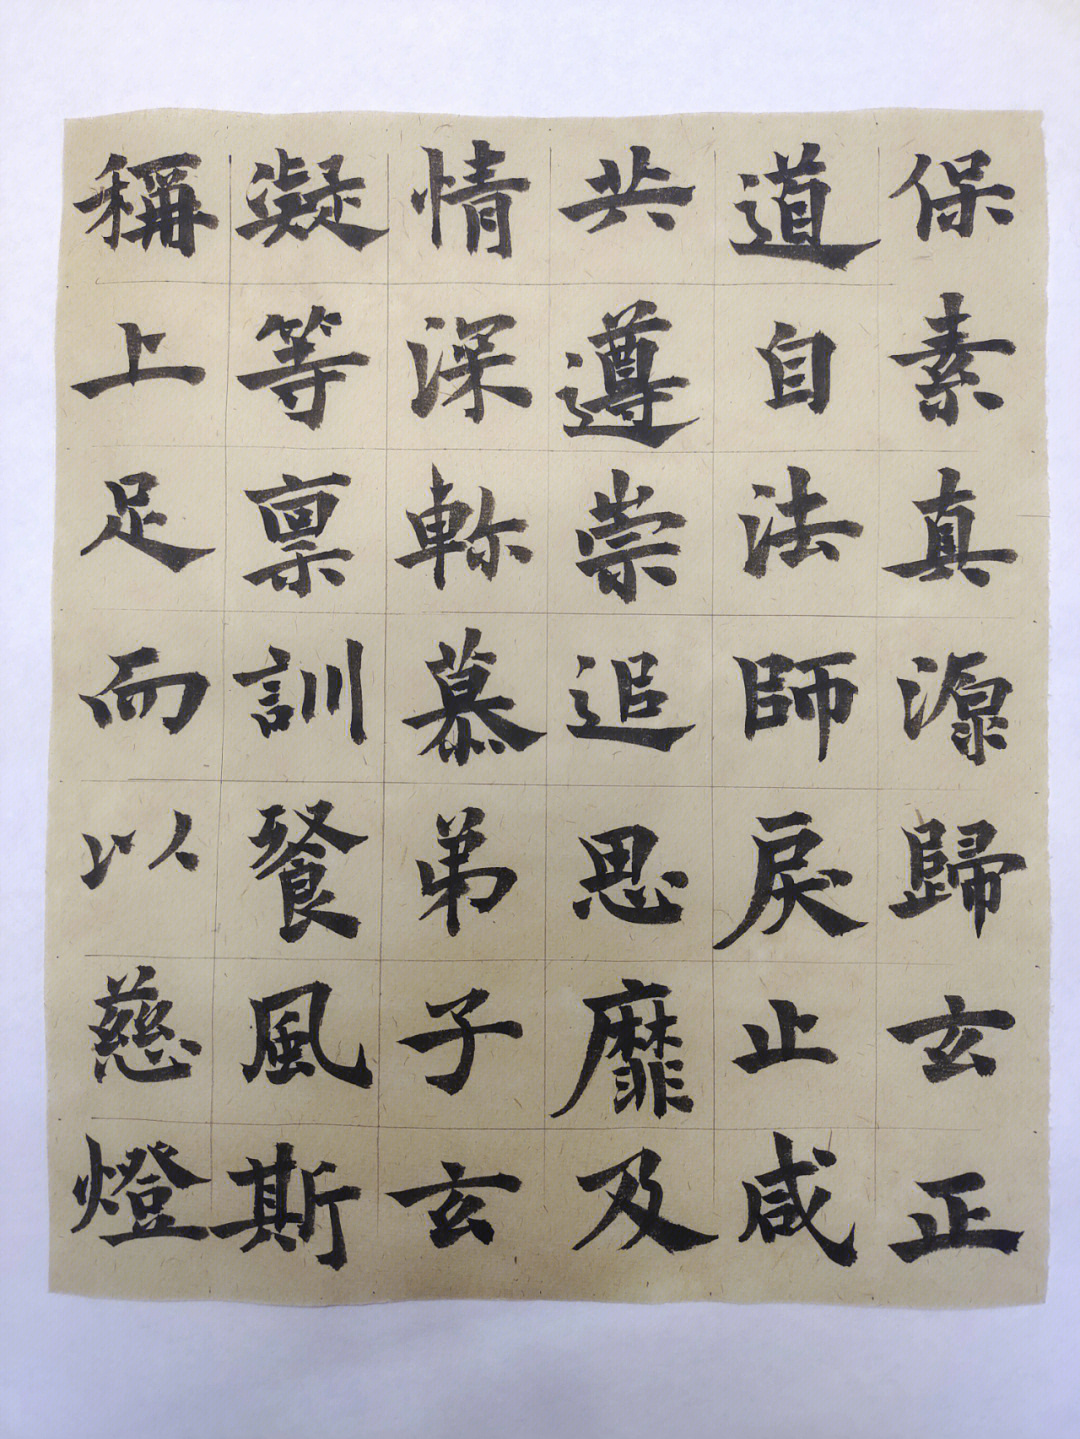 保素真源歸玄正
道自法師戾止咸
共遵崇追思靡及
情深軫慕弟子玄
凝等禀訓餐風斯
稱上足而以慈燈